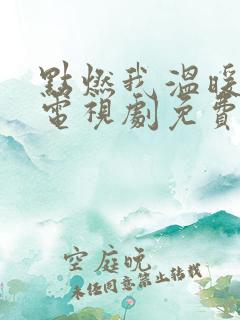 點燃我溫暖
電視劇免費
空庭晚
未經同意禁止轉載